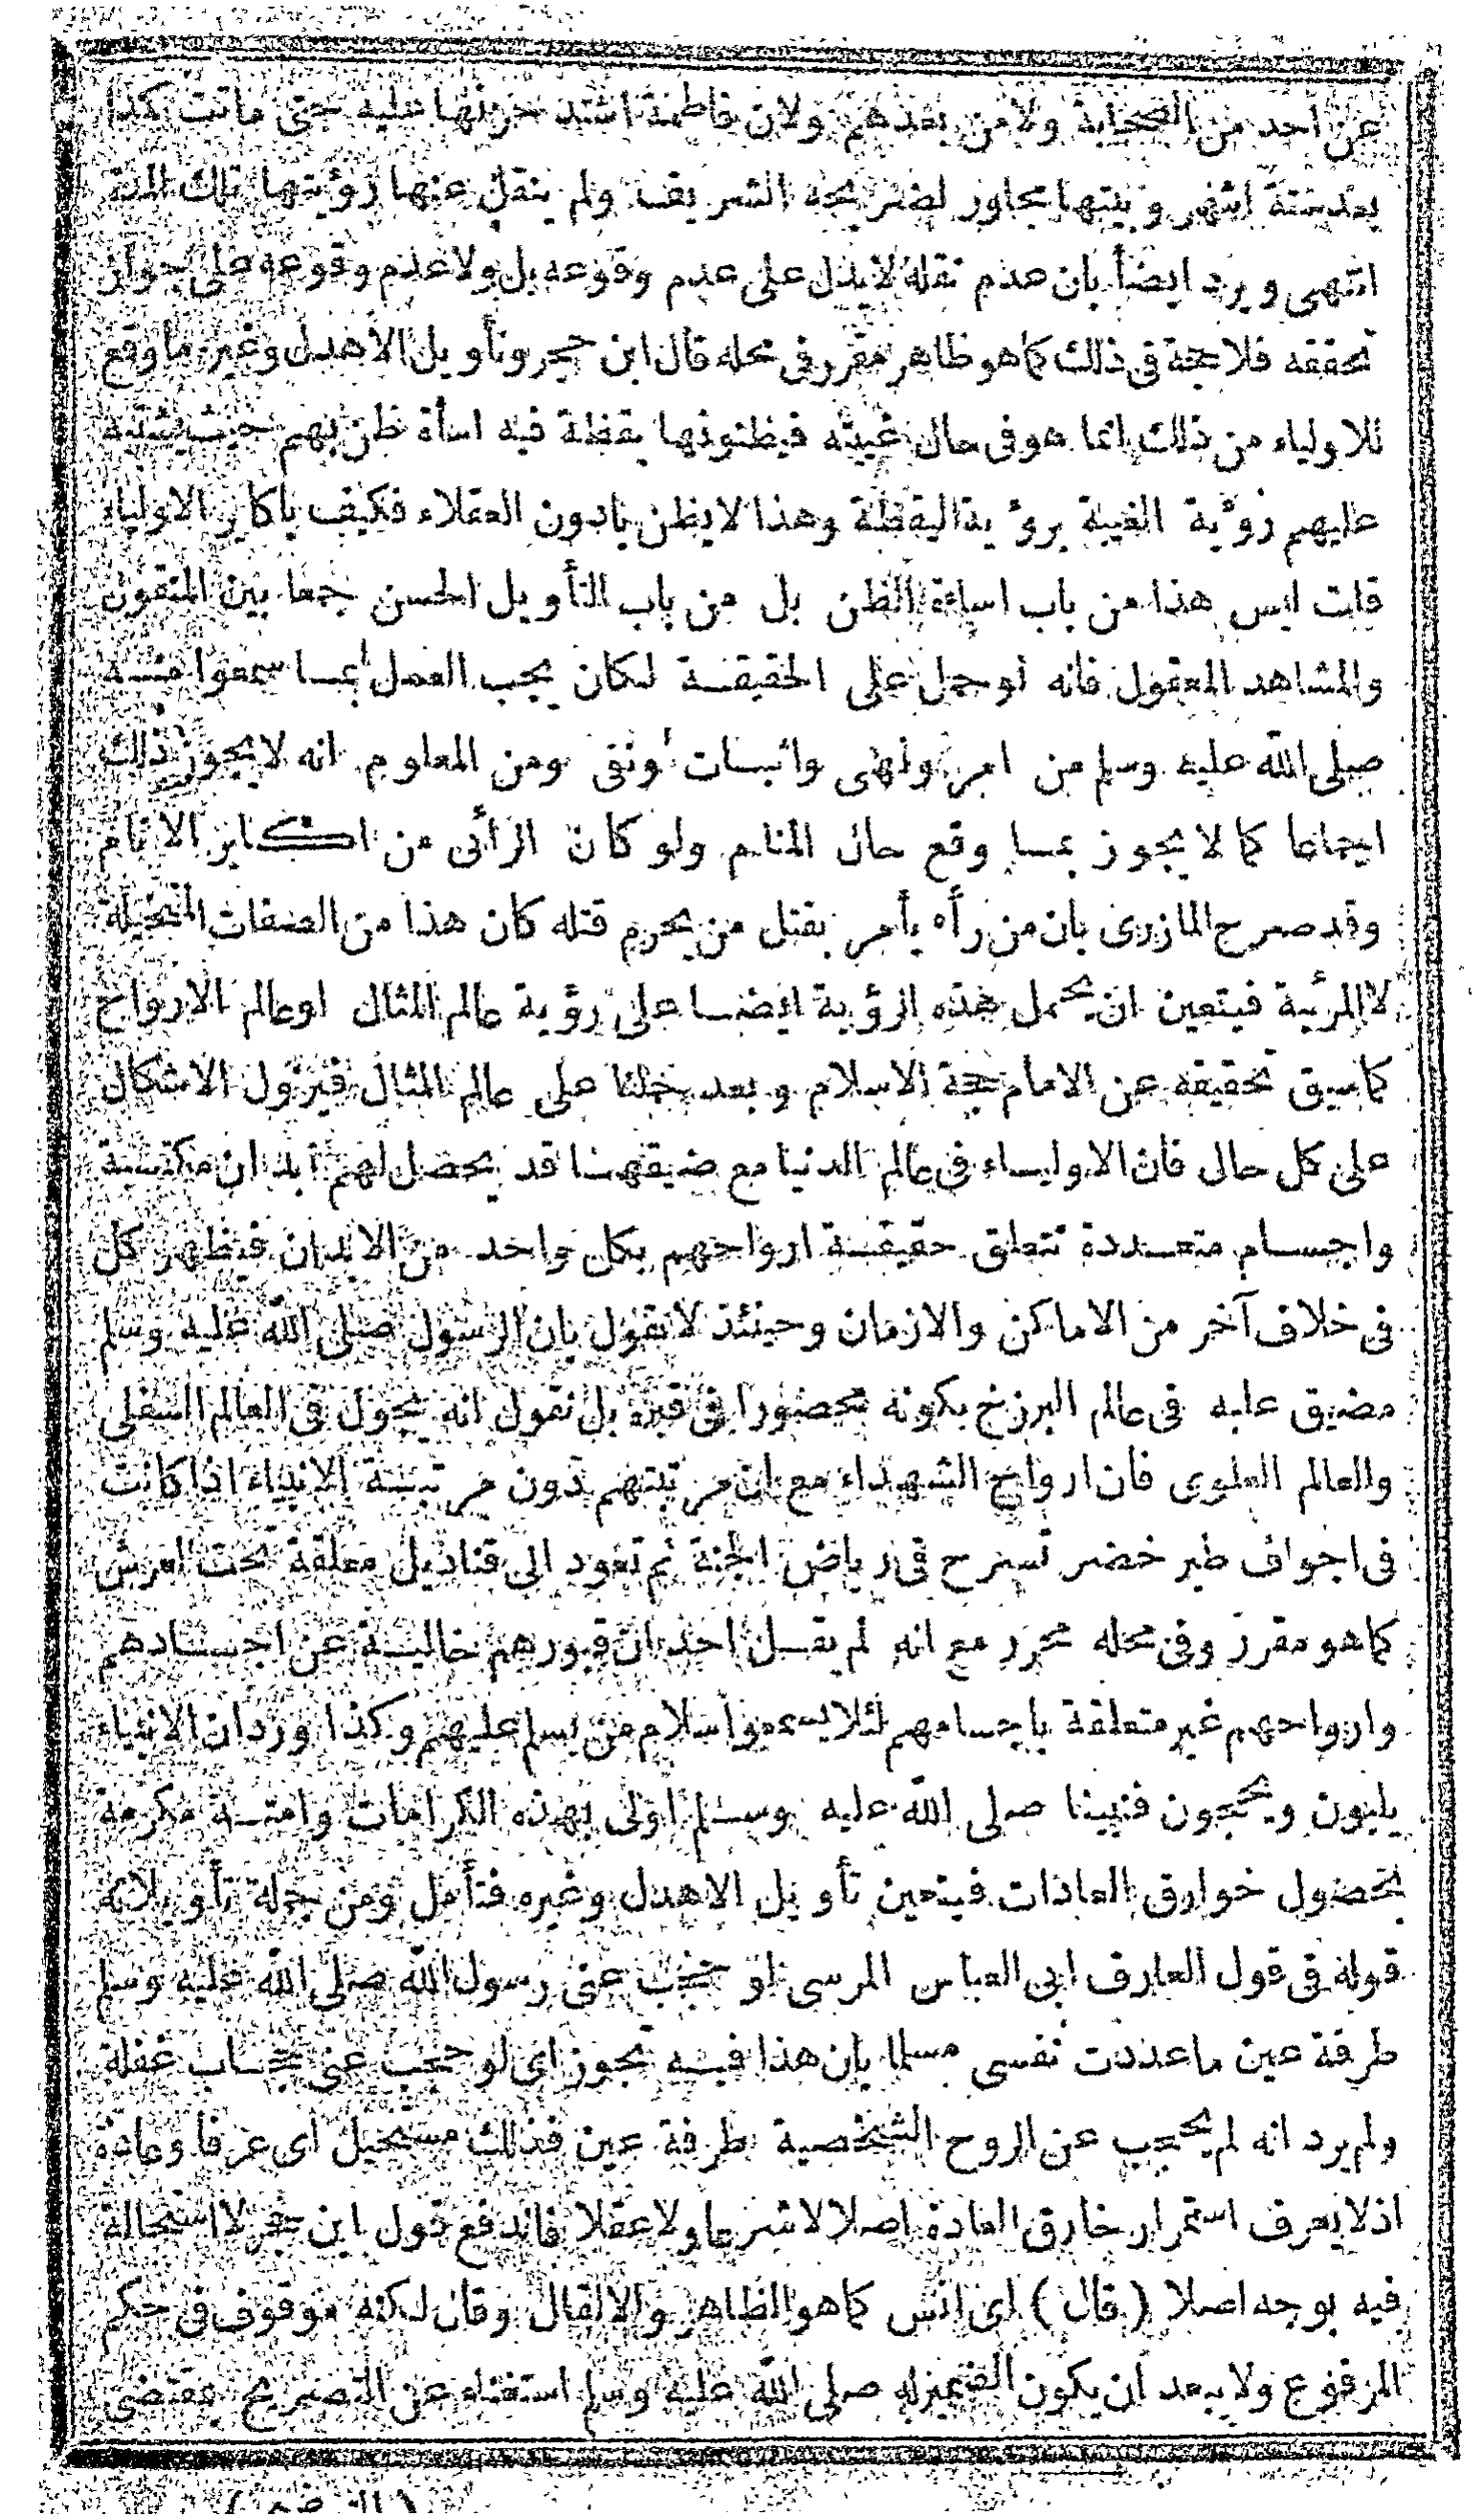 عن أحد من الصحابة ولا من بعدهم ولان فاطمة اشتد حزنها عليه حتى ماتت كمدا
بعد ستة اشهر وبيتها مجاور لضريحه الشريف ولم ينقل عنها رؤيتها تلك المدة
انتهى ويرد ايضا بان عدم نقله لا يدل على عدم وقوعه بل ولا عدم وقوعه على جواز
تحققه فلا حجة فى ذلك كما هو ظاهر مقرر فى محله قال ابن حجر وتأويل الاهدل وغيره ما وقع
للاولياء من ذلك انما هو فى حال غيبة فيظنونها يقظة فيه اسأة ظن بهم حيث يشتبه
عليهم رؤية الغيبة برؤية اليقظة وهذا لا يظن بادون العقلاء فكيف باكابر الاولياء
قلت ليس هذا من باب اساءة الظن بل من باب التأويل الحسن جمعا بين المنقول
والمشاهد المعقول فانه لو حمل على الحقيقة لكان يجب العمل بما سمعوا منه
صلى الله عليه وسلم من امر ونهى واثبات ونفى ومن المعلوم انه لا يجوز ذلك
اجماعا كما لا يجوز بما وقع حال المنام ولو كان الرأئى من اكابر الانام
وقد صرح المازرى بان من رأه يأمر بقتل من يحرم قتله كان هذا من الصفات المتخيلة
لا المرئية فيتعين ان يحمل هذه الرؤية ايضا على رؤية عالم المثال او عالم الارواح
كما سبق تحقيقه عن الامام حجة الاسلام وبعد حملنا على عالم المثال فيزول الاشكال
على كل حال فان الاولياء فى عالم الدنيا مع ضيقها قد يحصل لهم ابدان مكتسبة
واجسام متعددة تتعلق حقيقة ارواحهم بكل واحد من الابدان فيظهر كل
فى خلاف آخر من الاماكن والازمان وحينئذ لا نقول بان الرسول صلى الله عليه وسلم
مضيق عليه فى عالم البرزخ بكونه محصورا فى قبره بل نقول انه يجول فى العالم السفلى
والعالم العلوى فان ارواح الشهداء مع ان مرتبتهم دون مرتبة الانبياء اذا كانت
فى اجواف طير خضر تسرح فى رياض الجنة ثم تعود الى قناديل معلقة تحت العرش
كما هو مقرر وفى محله محرر مع انه لم يقل احد ان قبورهم خالية عن اجسادهم
وارواحهم غير متعلقة باجسامهم لئلا يسمعوا سلام من يسلم عليهم وكذا ورد ان الانبياء
يلبون ويحجون فنبينا صلى الله عليه وسلم اولى بهذه الكرامات وامته مكرمة
بحصول خوارق العادات فيتعين تأويل الاهدل وغيره فتأمل ومن جملة تأويلاته
قوله فى قول العارف ابى العباس المرسى لو حجب عنى رسول الله صلى الله عليه وسلم
طرفة عين ما عددت نفسى مسلما بان هذا فيه تجوز اى لو حجب عنى حجاب غفلة
ولم يرد انه لم يحجب عن الروح الشخصية طرفة عين فذلك مستحيل اى عرفا وعادة
اذ لا يعرف استمرار خارق العادة اصلا لا شرعا ولا عقلا فاندفع قول ابن حجر لا استحالة
فيه بوجه اصلا (قال) اى انس كما هو الظاهر والا لقال وقال لكنه موقوف فى حكم
المرفوع ولا يبعد ان يكون الضمير له صلى الله عليه وسلم استغناء عن التصريح بمقتضى